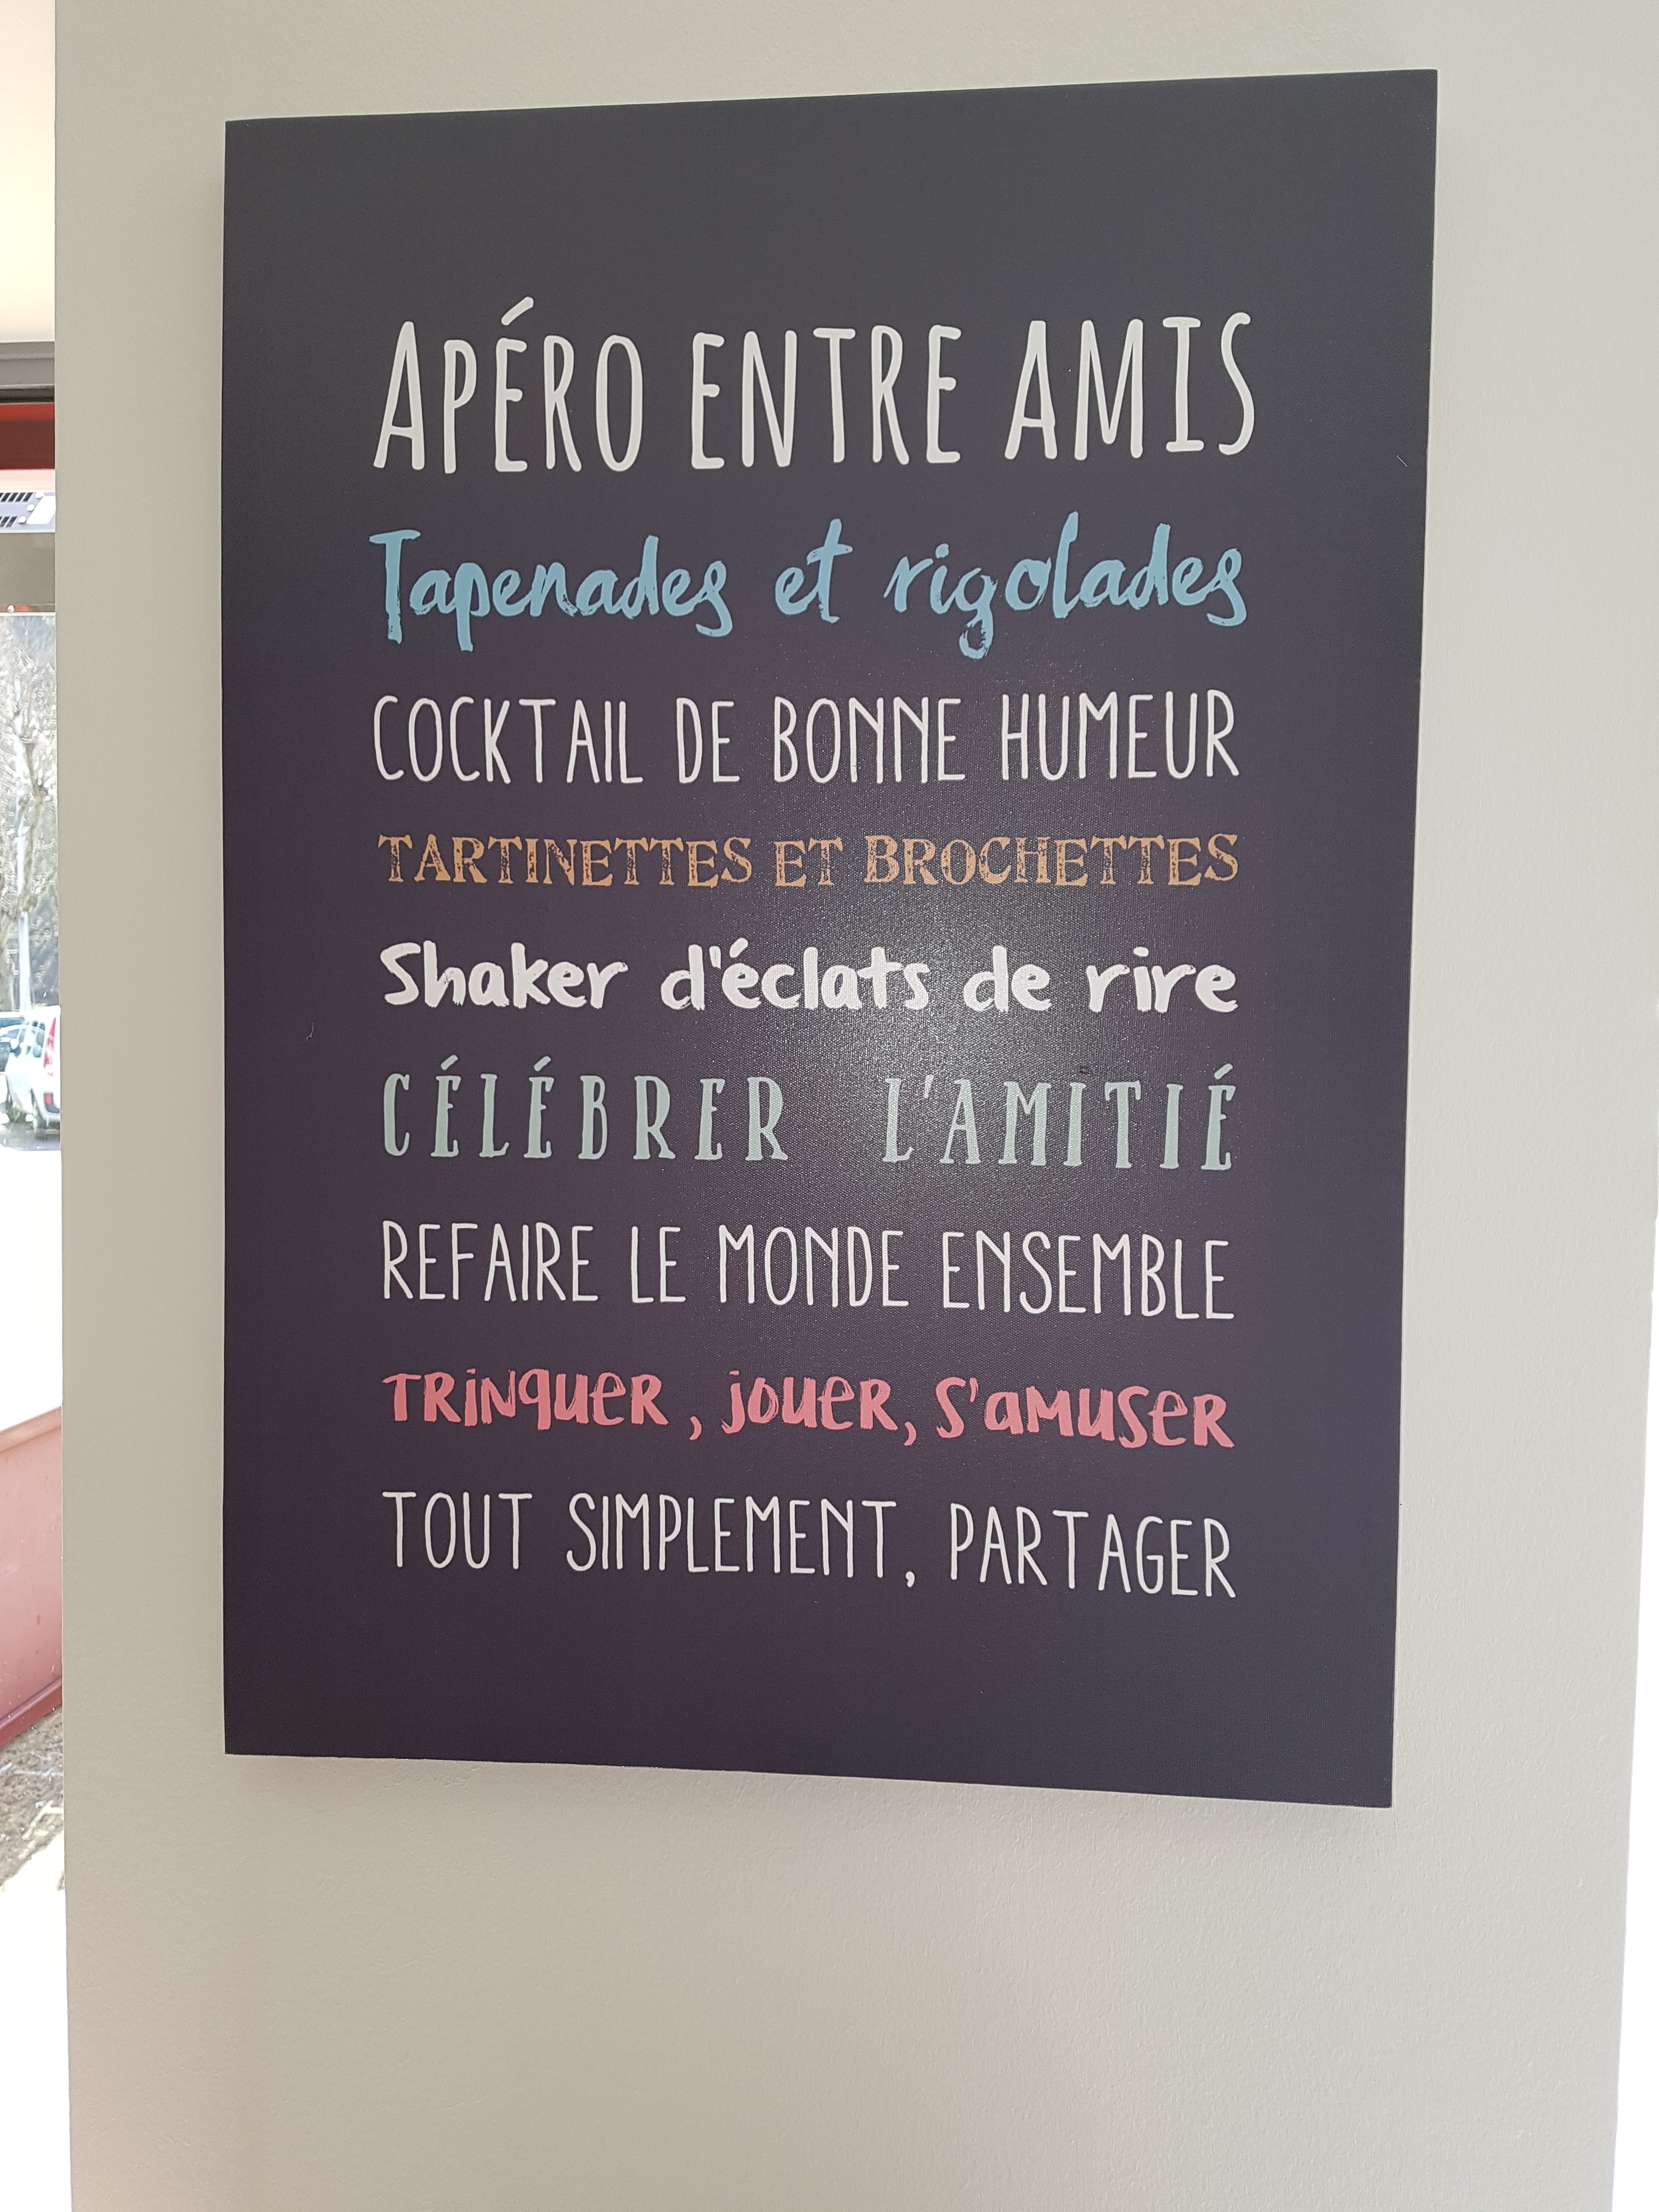 APÉRO ENTRE AMIS
Tapenades et rigolades
COCKTAIL DE BONNE HUMEUR
TARTINETTES ET BROCHETTES
Shaker d'éclats de rire
CÉLÉBRER L'AMITIÉ
REFAIRE LE MONDE ENSEMBLE
TRiNqUER, jOUER, S'aMUSER
TOUT SIMPLEMENT, PARTAGER